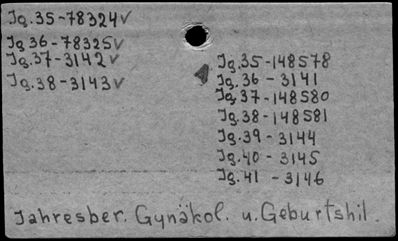 Jg.35-78324✓
Jg 36-78325✓
Jg.37-3142✓
Jg.38-3143✓
Jg.35-148578
Jg.36-3141
Jg.37-148580
Jg.38-148581
Jg.39-3144
Jg.40-3145
Jg.41-3146
Jahresber. Gynäkol. u. Geburtshil.